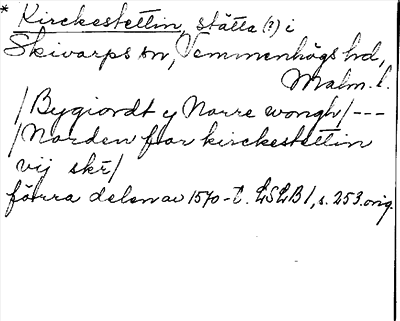 * Kirckestettin, stätta (?) i
Skivarps sn, Vemmenhögs hd,
Malm. l.
/Bygiordt y Norre wongh/ ---
/Norden for kirckestettin
vij skr/
förra delen av 1570-t. LSLB 1, s. 253. orig.